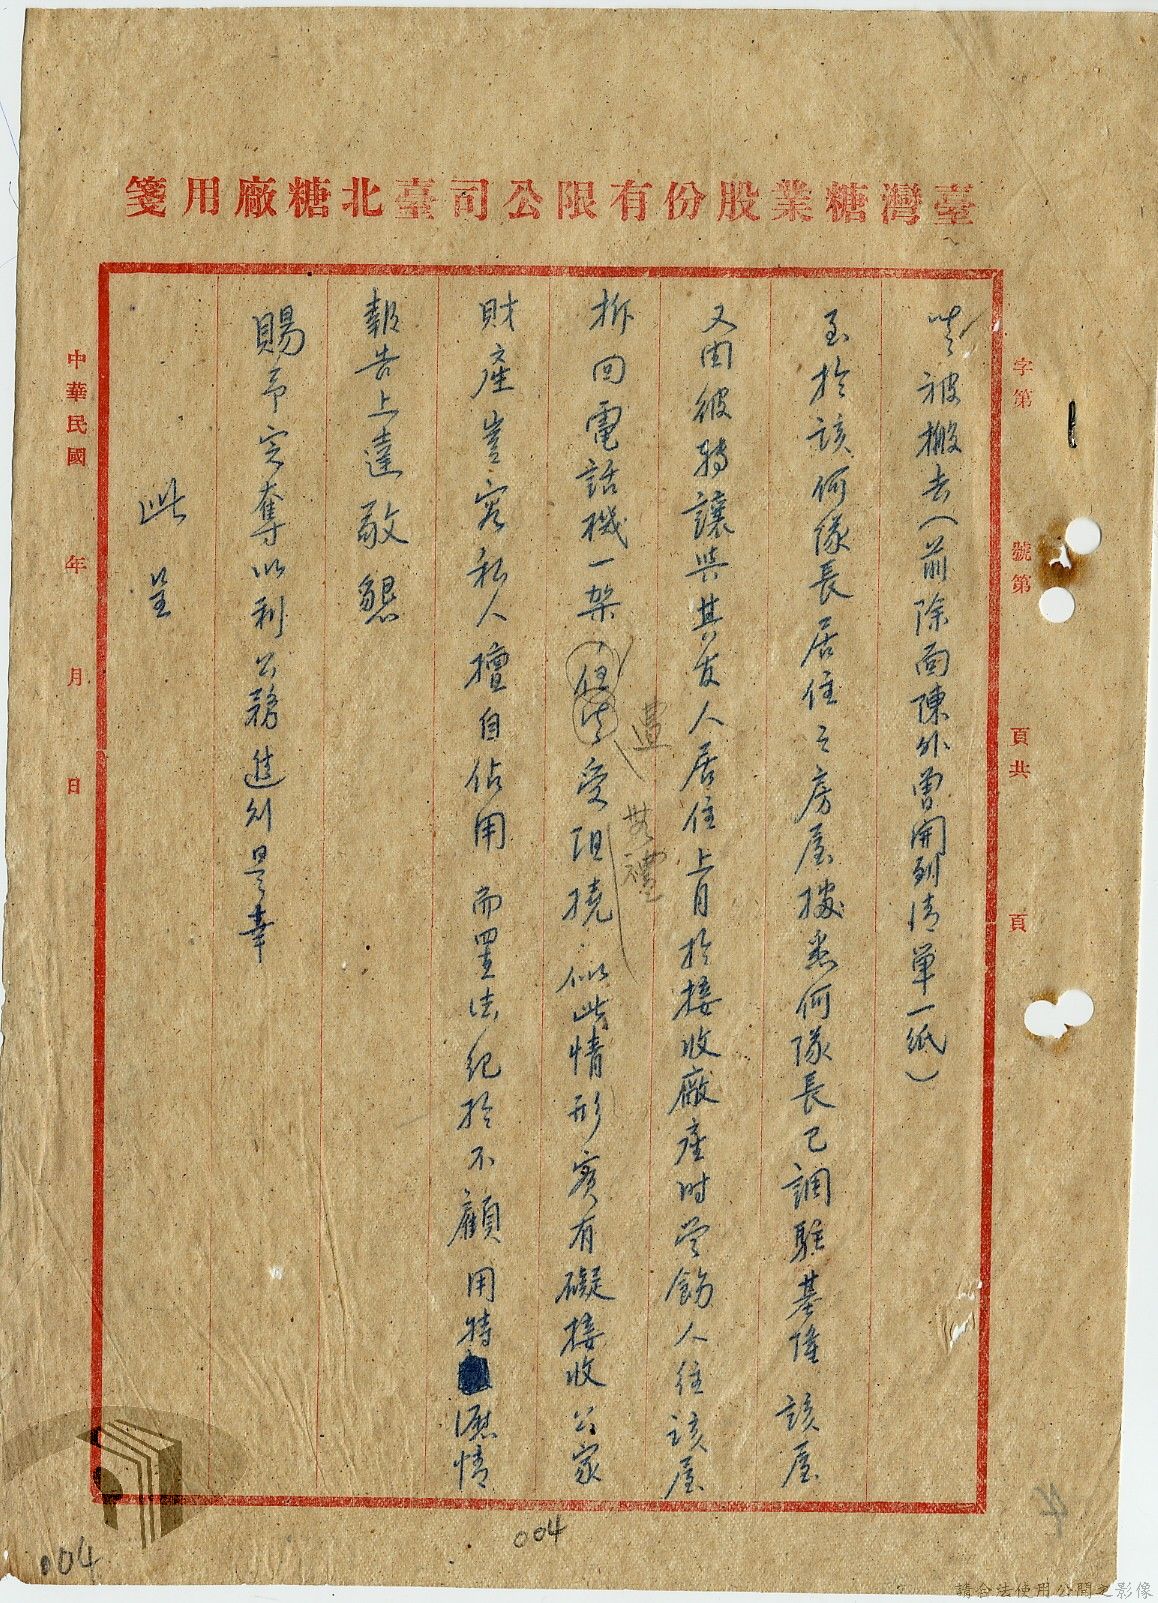 臺灣糖業股份有限公司臺北糖廠用箋
字第
號第
頁共
頁
被搬去(前除面陳外曾開列清單一紙)
至於該何隊長居住之房屋據悉何隊長已調駐基隆該屋
又由彼轉讓與其友人居住上月於接收廠產時曾飭人往該屋
拆回電話機一架但受阻撓似此情形實有礙接收公家
無禮
財產豈容私人擅自佔用而置法紀於不顧用特瀝情
報告上達敬懇
賜予定奪以利公務進行是幸
此呈
中華民國 年 月 日
004
004
4
請合法使用公開之影像